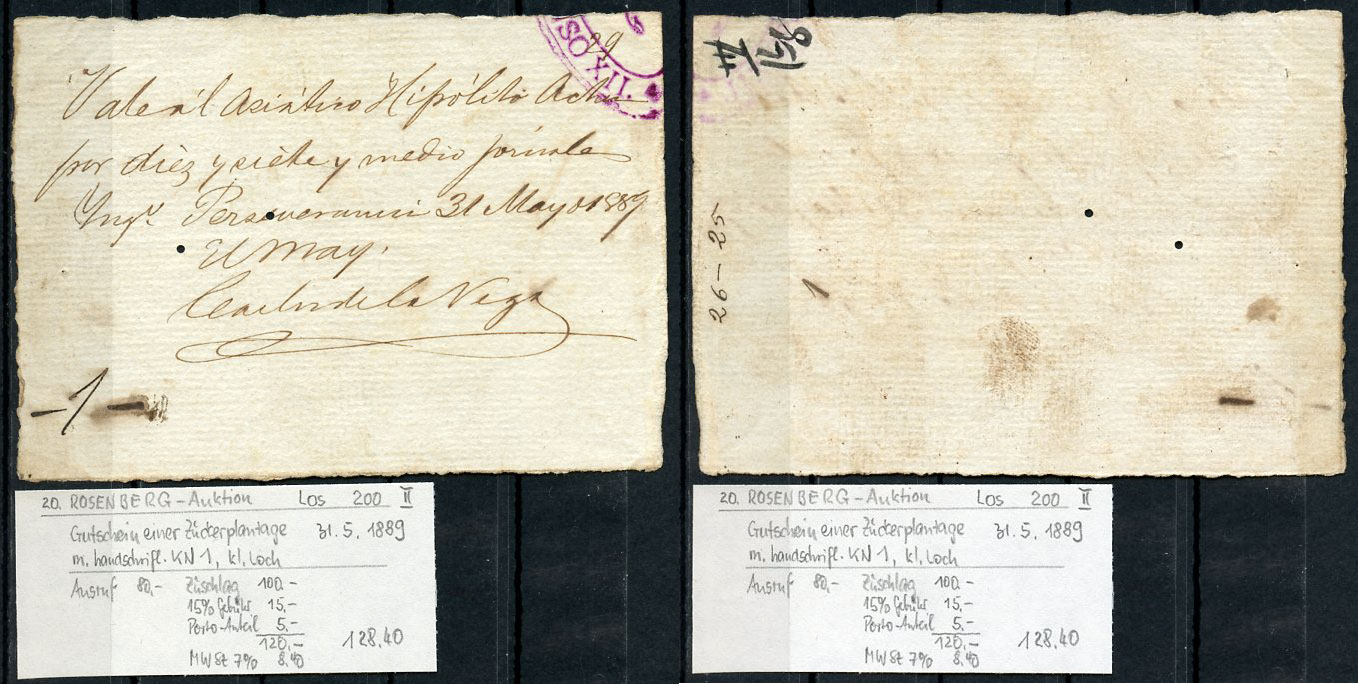 SO XII.
29
Vale al Asiático Hipólito Achu
por diez y siete y medio jornales
Ingº Perseverancia 31 Mayo 1889
El May.
Carlos de la Vega
-1-
20. ROSENBERG-Auktion Los 200 II
Gutschein einer Zuckerplantage 31.5.1889
m. handschriftl. KN 1, kl. Loch
Ausruf 80,- Zuschlag 100.-
15% Gebühr 15,-
Porto-Anteil 5.-
120,- 128.40
MWSt 7% 8.40
26-25
1
20. ROSENBERG-Auktion Los 200 II
Gutschein einer Zuckerplantage 31.5.1889
m. handschriftl. KN 1, kl. Loch
Ausruf 80,- Zuschlag 100.-
15% Gebühr 15,-
Porto-Anteil 5.-
120,- 128.40
MWSt 7% 8.40